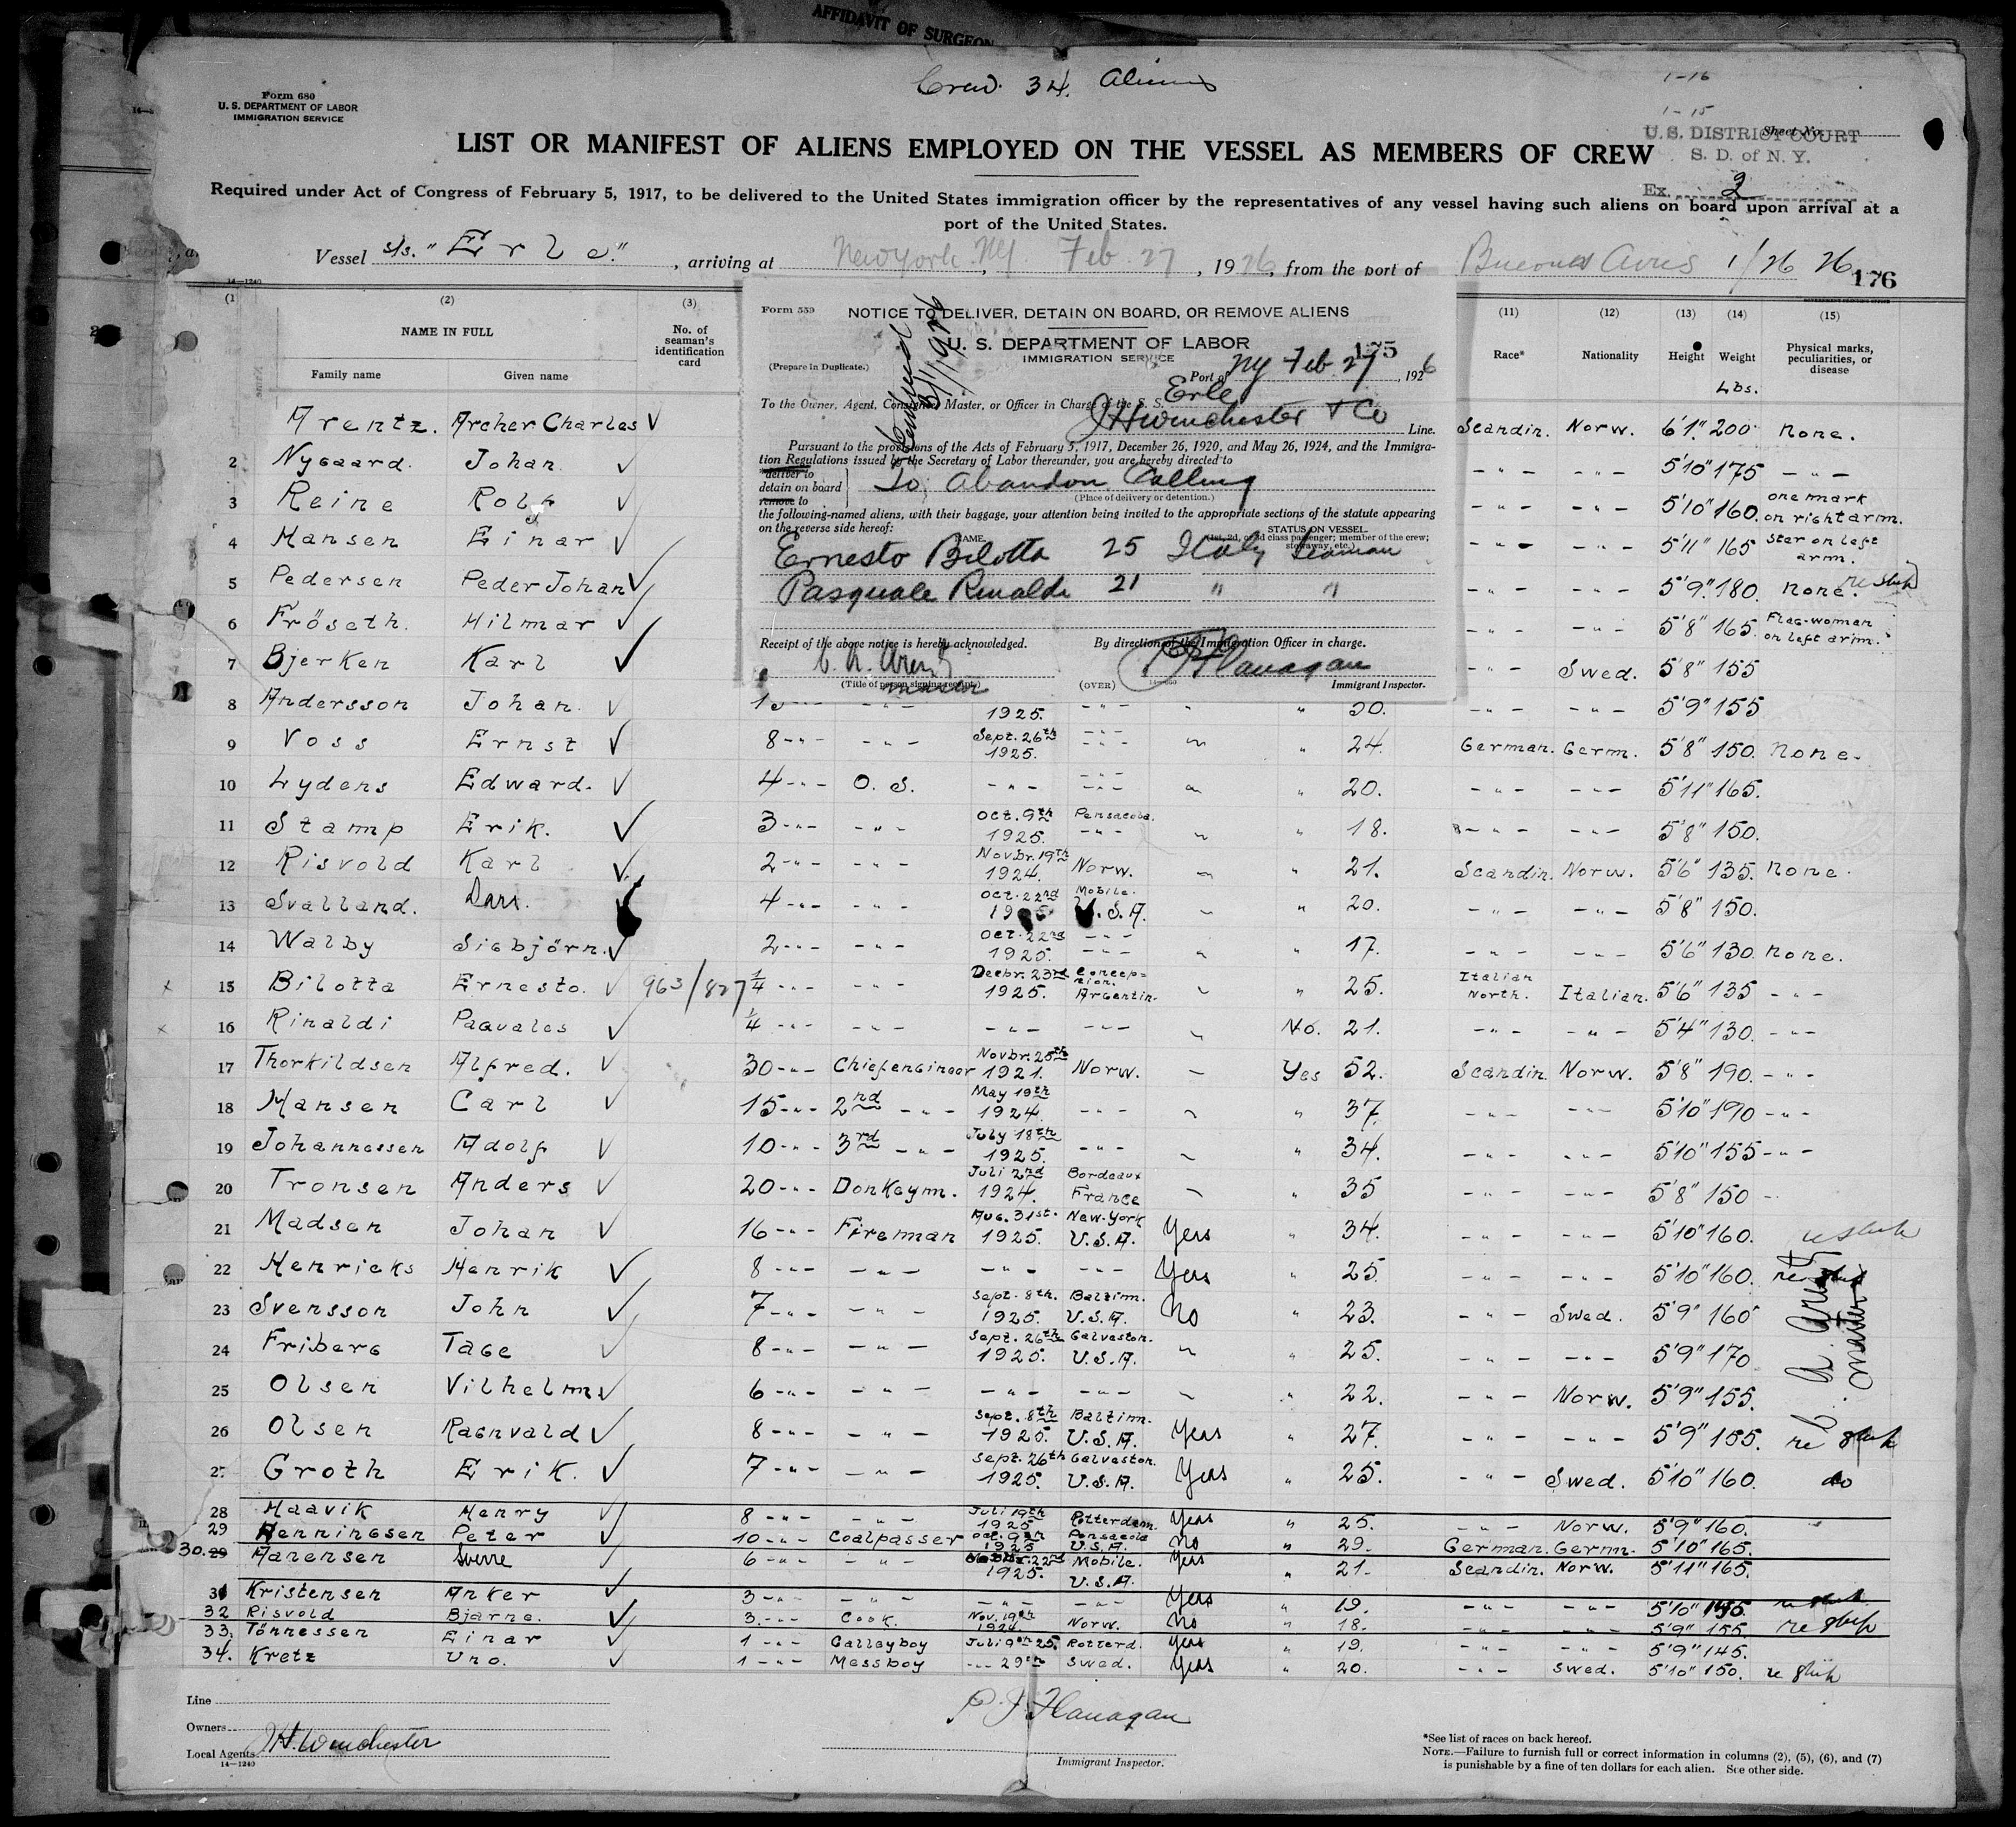 AFFIDAVIT OF SURGEON
Crew. 34. Aliens
1-16
1-15
Form 680
U. S. DEPARTMENT OF LABOR
IMMIGRATION SERVICE
Sheet No.
U. S. DISTRICT COURT
S. D. of N. Y.
Ex. 2
LIST OR MANIFEST OF ALIENS EMPLOYED ON THE VESSEL AS MEMBERS OF CREW
Required under Act of Congress of February 5, 1917, to be delivered to the United States immigration officer by the representatives of any vessel having such aliens on board upon arrival at a
port of the United States.
Vessel s/s. "Erle.", arriving at New York. NY, Feb 27, 1926, from the port of Buenos Aires 1/26 26
176
14—1240
(1 (2) (3) (11) (12) (13) (14) (15)
NAME IN FULL No. of seaman's identification card Race* Nationality Height Weight Physical marks, peculiarities, or disease
Family name Given name Lbs.
Form 559 NOTICE TO DELIVER, DETAIN ON BOARD, OR REMOVE ALIENS
U. S. DEPARTMENT OF LABOR 175
IMMIGRATION SERVICE
(Prepare in Duplicate.) Port of NY Feb 27, 1926
To the Owner, Agent, Consignee, Master, or Officer in Charge of the S. S. Erle
J H Winchester & Co Line.
Pursuant to the provisions of the Acts of February 5, 1917, December 26, 1920, and May 26, 1924, and the Immigra-
tion Regulations issued by the Secretary of Labor thereunder, you are hereby directed to
*deliver to
detain on board To, Abandon Calling
remove to (Place of delivery or detention.)
the following-named aliens, with their baggage, your attention being invited to the appropriate sections of the statute appearing
on the reverse side hereof:
NAME. STATUS ON VESSEL.
(1st, 2d, or 3d class passenger; member of the crew; stowaway, etc.)
Ernesto Bilotta 25 Italy Seaman
Pasquale Rinaldi 21 " "
Receipt of the above notice is hereby acknowledged. By direction of the Immigration Officer in charge.
P J Flanagan
(Title of person signing receipt) master (OVER) Immigrant Inspector.
Arentz. Archer Charles √ Scandin. Norw. 6'1." 200 None.
2 Nygaard. Johan. √ -"- -"- 5'10" 175 -"-
3 Reine Rolf √ -"- -"- 5'10" 160. one mark on right arm.
4 Hansen Einar √ -"- -"- 5'11" 165 Star on left arm.
5 Pedersen Peder Johan √ -"- -"- 5'9." 180. None.
6 Fröseth. Hilmar √ -"- -"- 5'8" 165. Flag-woman on left arm.
7 Bjerken Karl √ -"- Swed. 5'8" 155
8 Andersson Johan. √ -"- 1925. -"- " 30. -"- -"- 5'9" 155
9 Voss Ernst √ 8-"- -"- Sept. 26th 1925. -"- " 24. German. Germ. 5'8" 150. None.
10 Lydens Edward. √ 4-"- O. S. -"- -"- " 20. -"- -"- 5'11" 165.
11 Stamp Erik. √ 3-"- -"- Oct. 9th 1925. Pensacola. -"- " 18. -"- -"- 5'8" 150.
12 Risvold Karl √ 2-"- -"- Novbr. 19th 1924. Norw. " 21. Scandin. Norw. 5'6" 135. None.
13 Svalland. Lars. √ 4-"- -"- Oct. 22nd 1925 Mobile. U.S.A. " 20. -"- -"- 5'8" 150.
14 Walby Sigbjörn. √ 2-"- -"- Oct. 22nd 1925. -"- " 17. -"- -"- 5'6" 130. None.
x 15 Bilotta Ernesto. √ 963/827 1/4 -"- -"- Decbr. 23rd 1925. Concepcion. Argentin. " 25. Italian North. Italian. 5'6" 135 -"-
x 16 Rinaldi Paqvales √ 1/4 -"- -"- -"- -"- No. 21. -"- -"- 5'4" 130. -"-
17 Thorkildsen Alfred. √ 30-"- Chiefengineer Novbr. 25th 1921. Norw. Yes 52. Scandin. Norw. 5'8" 190. -"-
18 Hansen Carl √ 15-"- 2nd -"- May 19th 1924 -"- " 37. -"- -"- 5'10" 190 -"-
19 Johannessen Adolf √ 10-"- 3rd -"- July 18th 1925. -"- " 34. -"- -"- 5'10" 155 -"-
20 Tronsen Anders √ 20-"- Donkeym. Juli 2nd 1924. Bordeaux France " 35 -"- -"- 5'8" 150 -
21 Madsen Johan √ 16-"- Fireman Aug. 31st. 1925. New-York U.S.A. Yes " 34. -"- -"- 5'10" 160. reship
22 Henricks Henrik √ 8-"- -"- -"- -"- Yes " 25. -"- -"- 5'10" 160. reship
23 Svensson John √ 7-"- -"- Sept. 8th. 1925. Baltim. U.S.A. No " 23. -"- Swed. 5'9" 160
24 Friberg Tage √ 8-"- -"- Sept. 26th 1925. Galveston. U.S.A. " " 25. -"- -"- 5'9" 170
25 Olsen Vilhelm √ 6-"- -"- -"- -"- " 22. -"- Norw. 5'9" 155.
26 Olsen Ragnvald √ 8-"- -"- Sept. 8th 1925. Baltim. U.S.A. Yes " 27. -"- -"- 5'9" 155. reship
27 Groth Erik. √ 7-"- -"- Sept. 26th 1925. Galveston. U.S.A. Yes " 25. -"- Swed. 5'10" 160. do
28 Haavik Henry √ 8-"- -"- Juli 19th 1925 Rotterdam. Yes " 25. -"- Norw. 5'9" 160.
29 Henningsen Peter √ 10-"- Coalpasser Oct. 9th 1925 Pensacola U.S.A. No " 29. German. Germ. 5'10" 165.
30. 29 Aarensen Sverre √ 6-"- -"- 22nd 1925. Mobile. U.S.A. Yes " 21. Scandin. Norw. 5'11" 165.
31 Kristensen Anker √ 3-"- -"- -"- -"- Yes " 19. -"- -"- 5'10" 145. reship
32 Risvold Bjarne. √ 3-"- Cook. Nov. 19th 1924. Norw. No " 18. -"- -"- 5'9" 155. reship
33. Tönnessen Einar √ 1-"- Galleyboy Juli 9th 25. Rotterd. Yes " 19. -"- -"- 5'9" 145.
34. Kretz Uno. √ 1-"- Messboy -"- 29th Swed. Yes " 20. -"- Swed. 5'10" 150. reship
master
Line
Owners
Local Agents J H. Winchester
14—1240
P. J. Flanagan
Immigrant Inspector.
*See list of races on back hereof.
NOTE.—Failure to furnish full or correct information in columns (2), (5), (6), and (7)
is punishable by a fine of ten dollars for each alien. See other side.